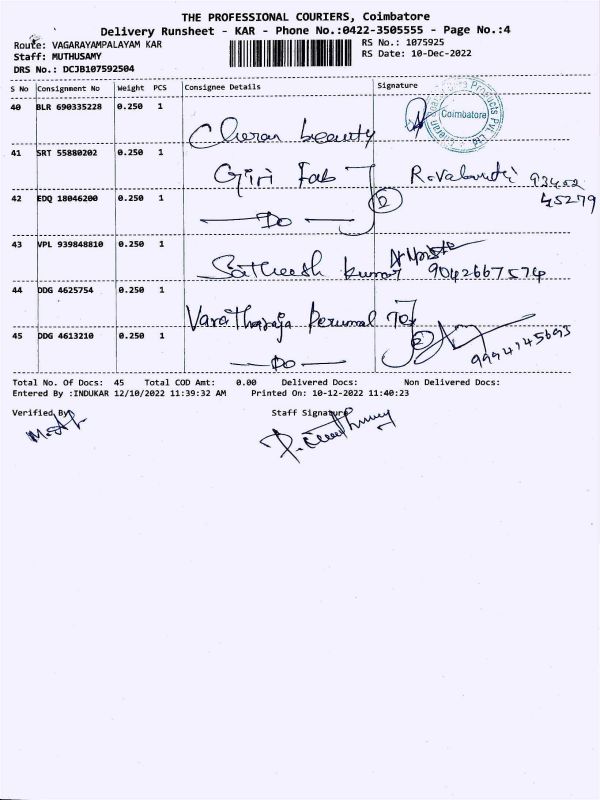 THE PROFESSIONAL COURIERS, Coimbatore
Delivery Runsheet - KAR - Phone No.:0422-3505555 - Page No.:4
Route: VAGARAYAMPALAYAM KAR
RS No.: 1075925
Staff: MUTHUSAMY
RS Date: 10-Dec-2022
DRS No.: DCJB107592504
S No Consignment No Weight PCS Consignee Details Signature
40 BLR 690335228 0.250 1
Cheran beauty
Products Pvt. Ltd
Coimbatore
41 SRT 55880202 0.250 1
Giri Fab
93452
45279
42 EDQ 18046200 0.250 1
Do
2
43 VPL 939848810 0.250 1
Satheesh kumar 9042667574
44 DDG 4625754 0.250 1
Varatharaja Perumal Tex
45 DDG 4613210 0.250 1
Do
2
9994145693
Total No. Of Docs: 45 Total COD Amt: 0.00 Delivered Docs: Non Delivered Docs:
Entered By :INDUKAR 12/10/2022 11:39:32 AM Printed On: 10-12-2022 11:40:23
Verified By
Staff Signature